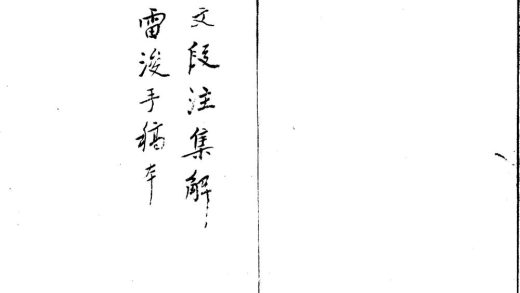 文段注集解
雷浚手稿本